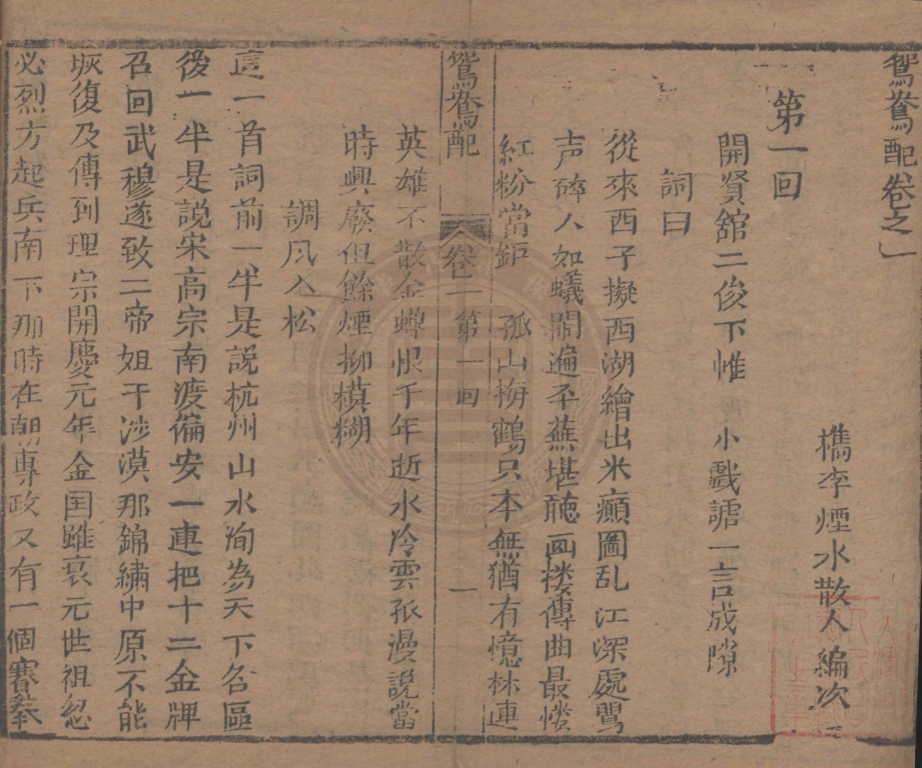 鴛鴦配卷之一
檇李煙水散人編次
第一回
開賢舘二俊下帷 小戲謔一言成隙
詞曰
從來西子擬西湖繪出米癲圖乱江深處鶯
声碎人如蟻鬧遍平蕪堪聴画楼傳曲最憐
紅粉當鉅 孤山梅鶴只本無猶有憶林逋
鴛鴦配 卷一 第一回 一
英雄不散金蟬恨千年逝水冷雲孤漫說當
時興廢但餘煙柳模糊
調風入松
這一首詞前一半是説杭州山水洵為天下名區
後一半是説宋高宗南渡偏安一連把十二金牌
召回武穆遂致二帝姐于沙漠那錦繡中原不能
恢復及傳到理宗開慶元年金国雖衰元世祖忽
必烈方起兵南下那時在朝專政又有一個賽秦